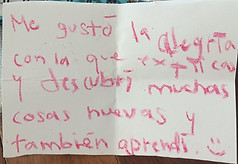 Me gustó la alegría
con la que explicas
y descubrí muchas
cosas nuevas y
también aprendí.